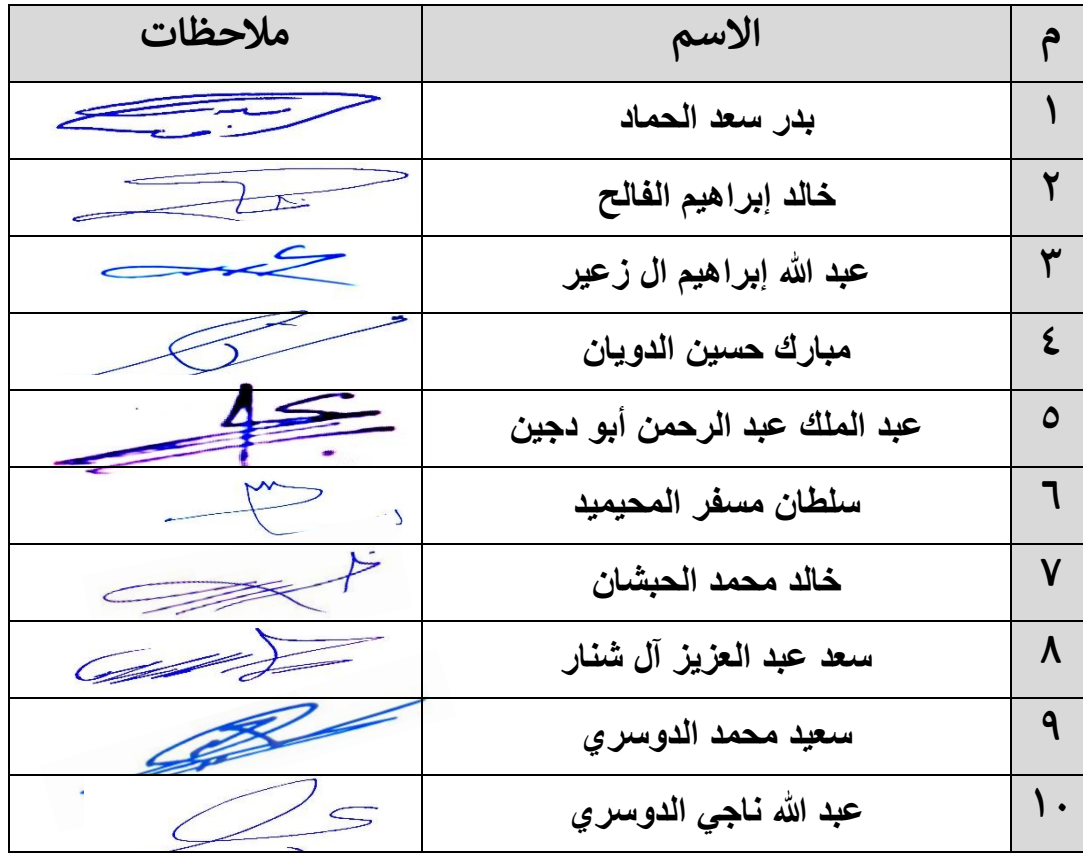 م الاسم ملاحظات
١ بدر سعد الحماد
٢ خالد إبراهيم الفالح
٣ عبد الله إبراهيم ال زعير
٤ مبارك حسين الدويان
٥ عبد الملك عبد الرحمن أبو دجين
٦ سلطان مسفر المحيميد
٧ خالد محمد الحبشان
٨ سعد عبد العزيز آل شنار
٩ سعيد محمد الدوسري
١٠ عبد الله ناجي الدوسري